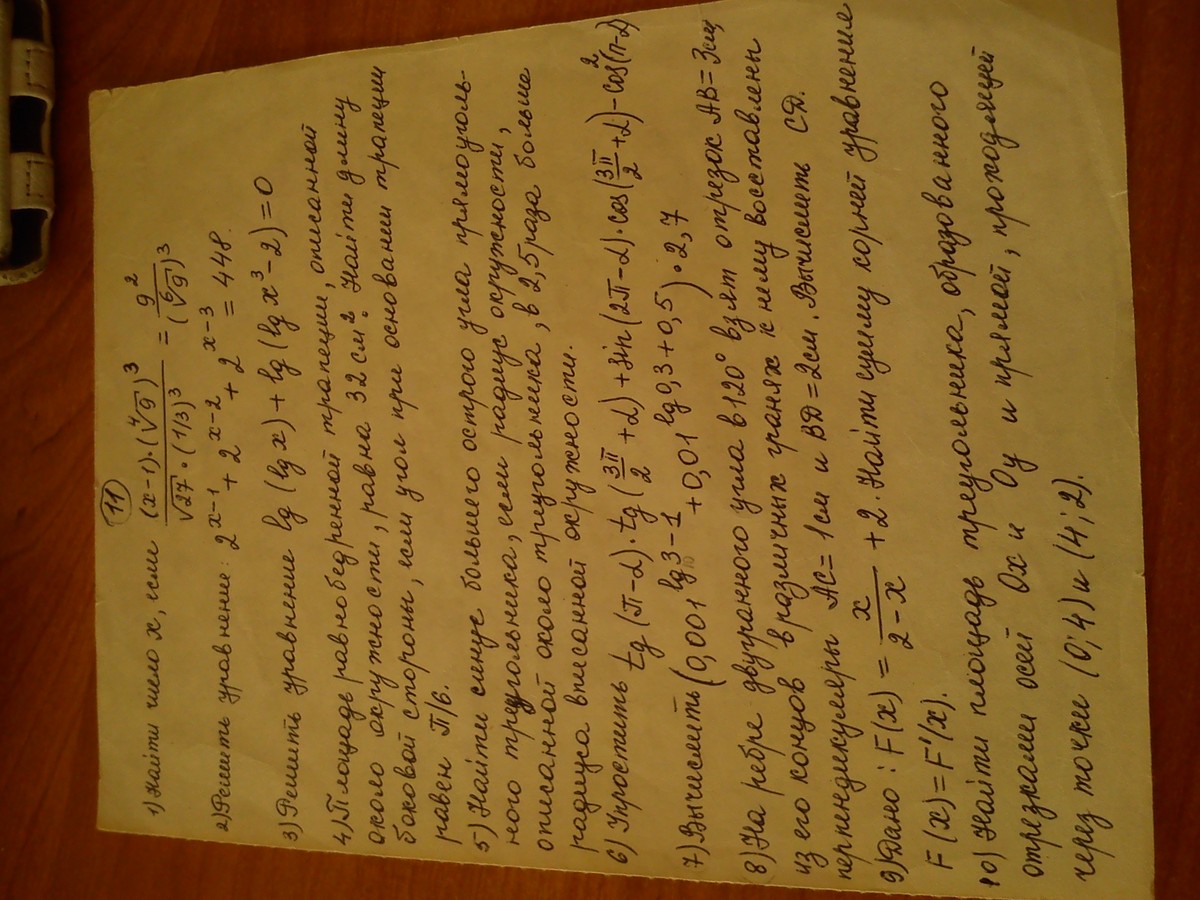 11
1) Найти число x, если (x-1)·(∜9)³ / √27·(1/3)³ = 9² / (⁶√9)³
2) Решить уравнение: 2^(x-1) + 2^(x-2) + 2^(x-3) = 448.
3) Решить уравнение lg(lg x) + lg(lg x³ - 2) = 0
4) Площадь равнобедренной трапеции, описанной
около окружности, равна 32 см². Найти длину
боковой стороны, если угол при основании трапеции
равен π/6.
5) Найти синус большего острого угла прямоуголь-
ного треугольника, если радиус окружности,
описанной около треугольника, в 2,5 раза больше
радиуса вписанной окружности.
6) Упростить tg(π-α)·tg(3π/2+α)+sin(2π-α)·cos(3π/2+α)-cos²(π-α)
7) Вычислить (0,001^(lg3-1) + 0,01^(lg0,3+0,5))·2,7
8) На ребре двугранного угла в 120° взят отрезок AB=3см
из его концов в различных гранях к нему восставлены
перпендикуляры AC=1см и BД=2см. Вычислить CД.
9) Дано: F(x) = x/(2-x) + 2. Найти сумму корней уравнение
F(x)=F'(x).
10) Найти площадь треугольника, образованного
отрезками осей Ox и Oy и прямой, проходящей
через точки (0;4) и (4;2).